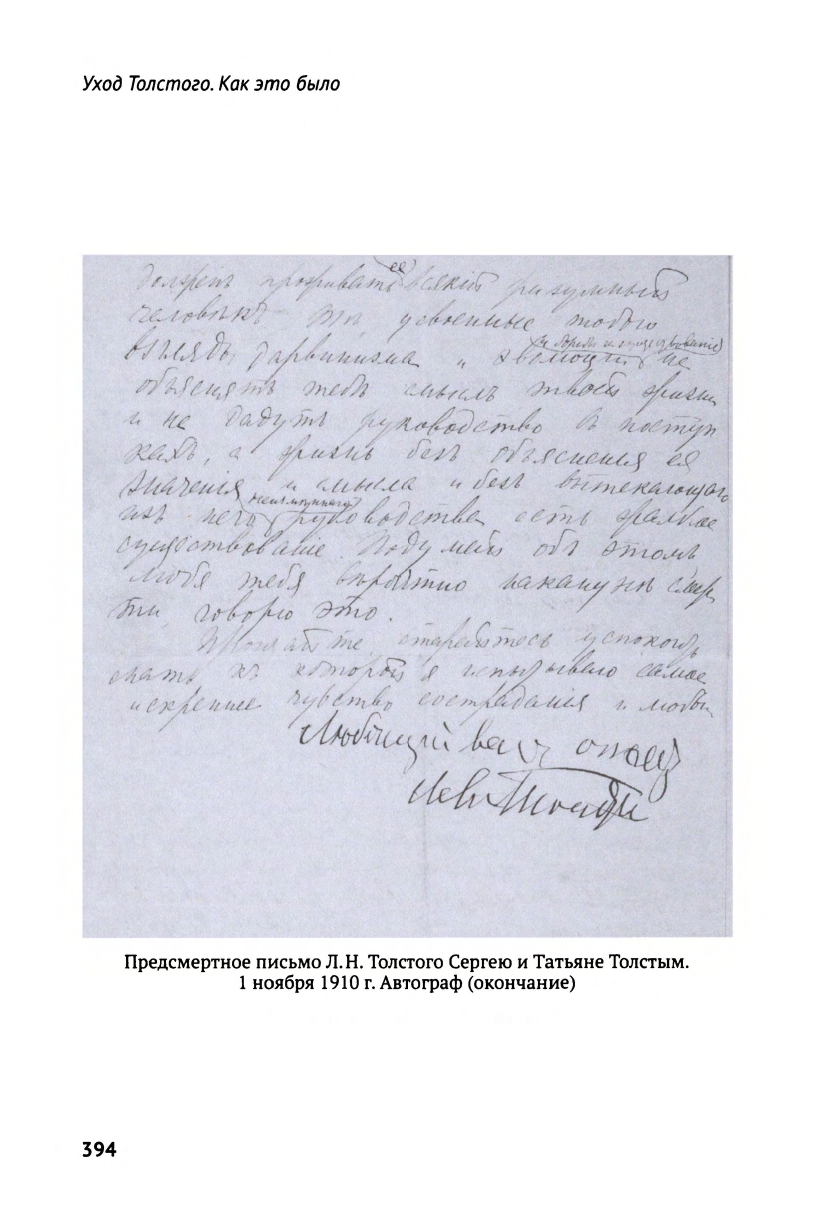 Уход Толстого. Как это было
ее
должен проживать всякій разумный
человѣкъ. Тѣ усвоенные тобою
и борьбы и существованіе
взгляды дарвинизма и эволюціи не
объяснятъ тебѣ смысль твоей жизни
и не дадутъ руководство въ поступ
кахъ, а жизнь безъ объясненія ея
значенія и смысла и безъ вытекающаго
неизмѣннаго
изъ него руководства есть жалкое
существованіе. Подумай объ этомъ
любя тебя вѣроятно наканунѣ смер
ти говорю это.
Прощайте, старайтесь успокоить
мать къ которой я испытываю самое
искреннее чувство состраданія и любви
Любящій васъ отецъ
Левъ Толстой
Предсмертное письмо Л. Н. Толстого Сергею и Татьяне Толстым.
1 ноября 1910 г. Автограф (окончание)
394